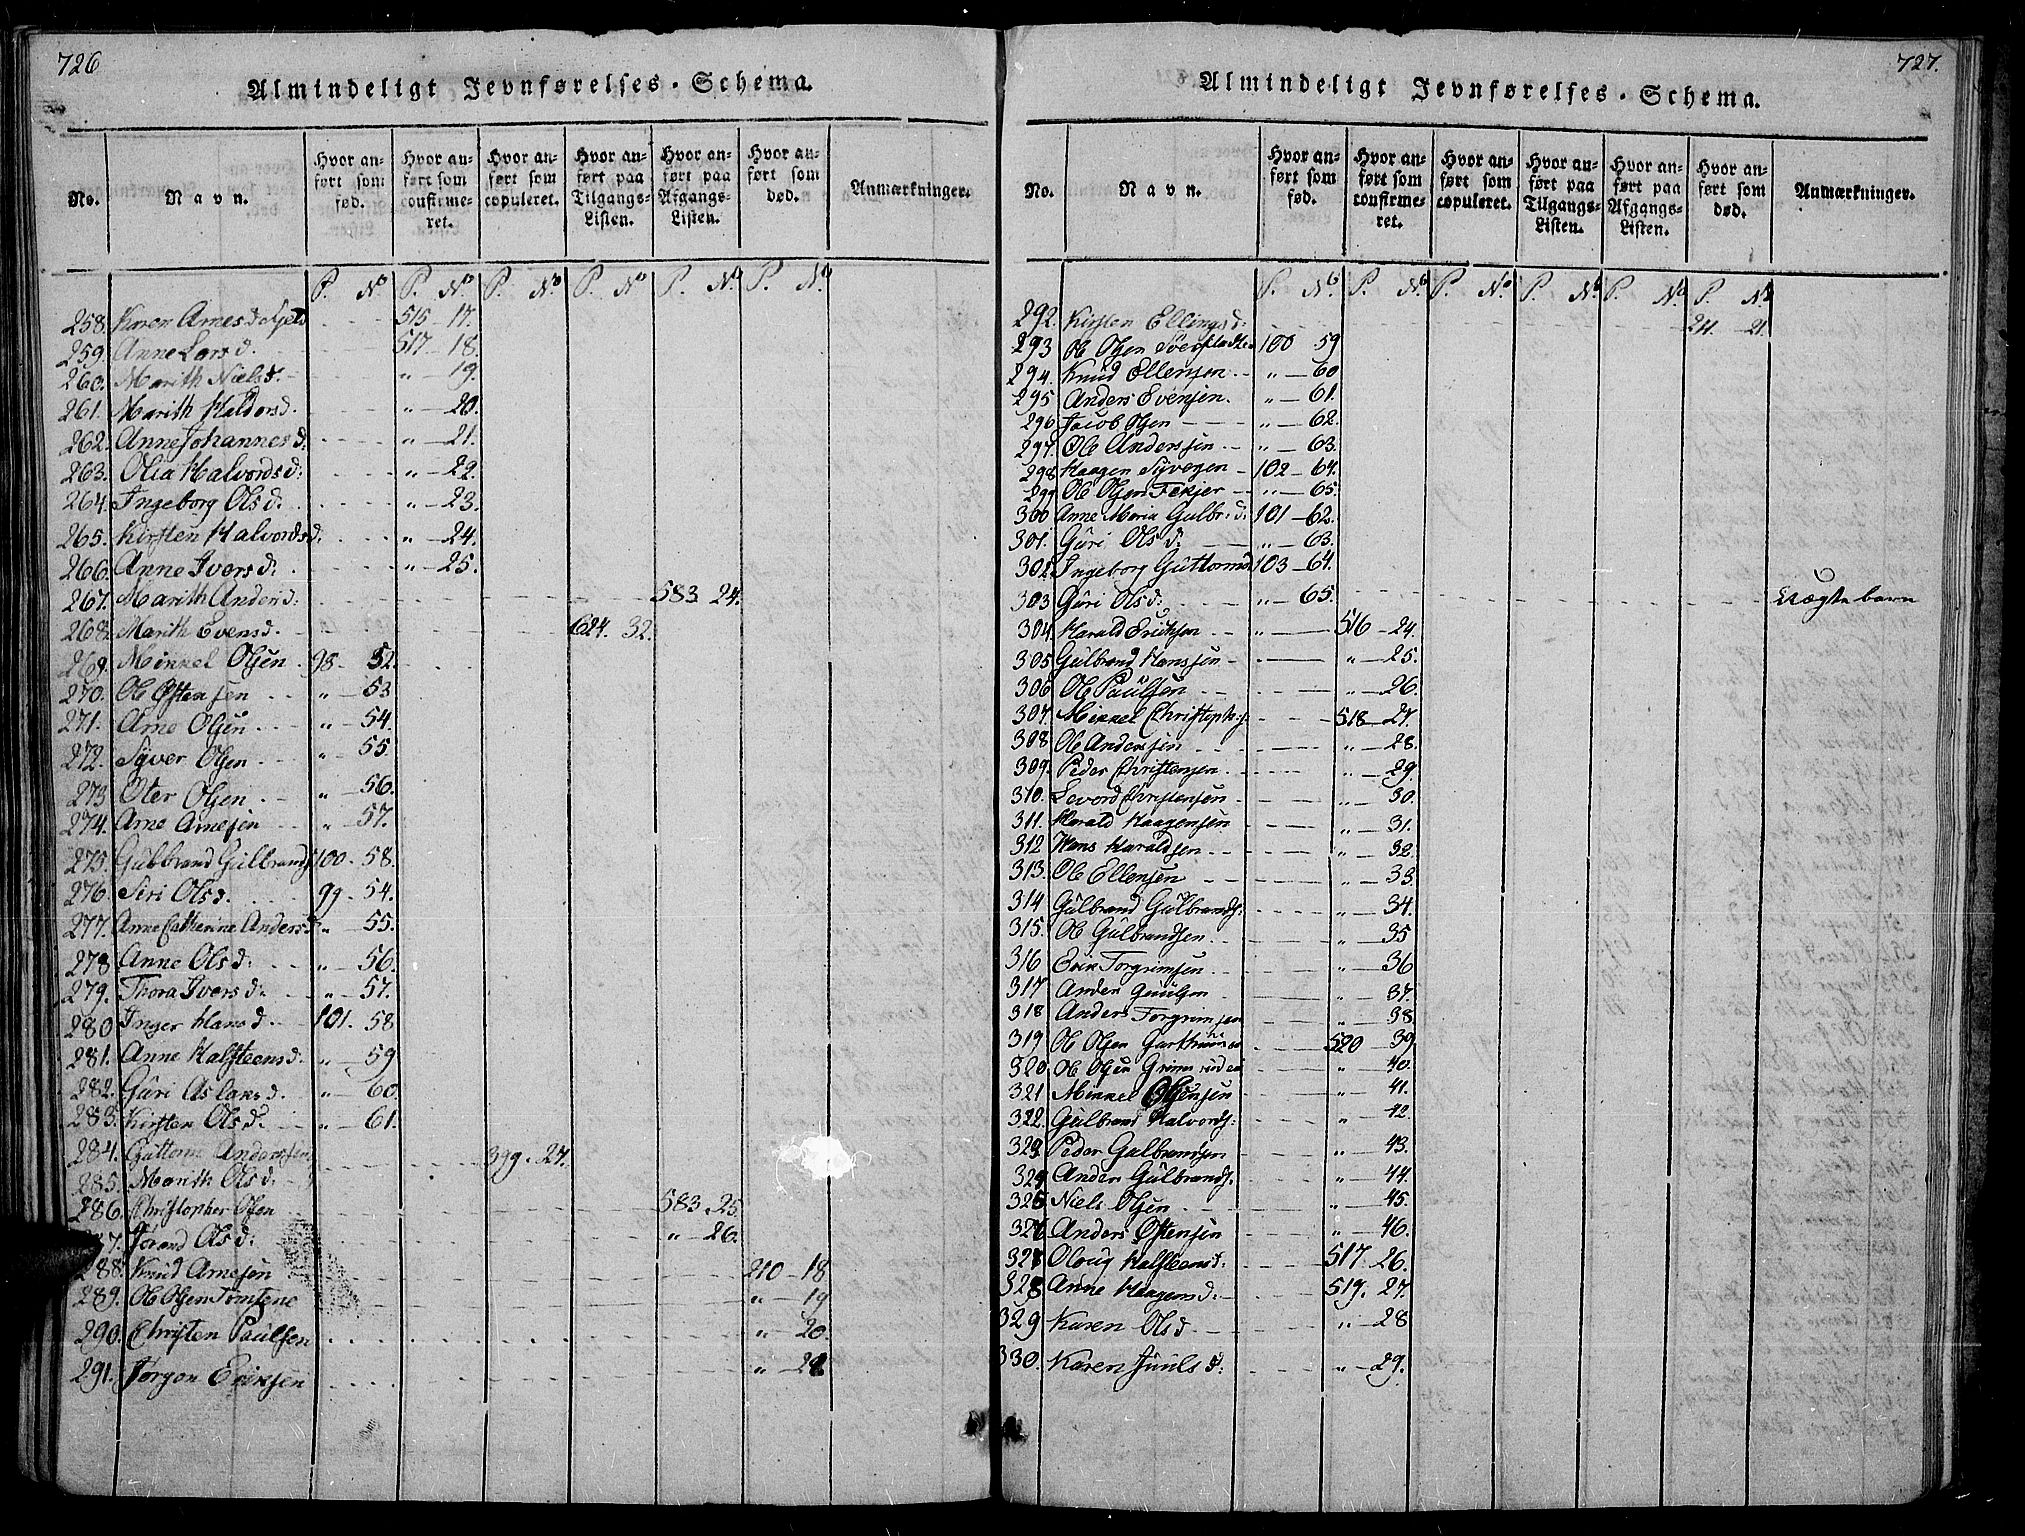 726
Almindeligt Jevnførelses-Schema.
No.
Navn.
Hvor anført som fød.
Hvor anført som confirmeret.
Hvor anført som copuleret.
Hvor anført paa Tilgangs-Listen.
Hvor anført paa Afgangs-Listen.
Hvor anført som død.
Anmærkninger.
P. No P. No P. No P. No P. No P. No
258. Karen Arnesd. 515 - 17.
259. Anne Larsd. 517 - 18.
260. Marith Nielsd. " - 19.
261. Marith Haldorsd. " - 20.
262. Anne Johannesd: " - 21.
263. Olia Halvordsd: " - 22.
264. Ingeborg Olsd. " - 23.
265. Kirsten Halvordsd. " - 24.
266. Anne Iversd: " - 25.
267. Marith Andersd: 583 24.
268. Marith Evensd. 624. 32.
269. Mikkel Olsen 98 - 52.
270. Ole Østensen " - 53
271. Arne Olsen " - 54.
272. Syver Olsen " - 55.
273 Oter Olsen " - 56.
274. Arne Arnesen " - 57.
275. Gulbrand Gulbrands. 100 - 58.
276. Siri Olsd. 99 - 54.
277. Anne Catherine Andersd " - 55.
278 Anne Olsd: " - 56.
279. Thora Iversd. " - 57.
280 Inger Hansd. 101. 58
281. Anne Halsteensd: " - 59
282. Guri Aslaksd. " - 60
283. Kirsten Olsd: " - 61.
284. Guttorm Anderssen 399. 27.
285. Marith Olsd.
286. Christopher Olsen 583. 25.
7. Jorand Olsd: " - 26.
288. Knud Arnesen 210 - 18
289. Ole Olsen Tomtene " - 19
290. Christen Paulsen " - 20.
291. Jørgen Eriksen " - 21
727.
Almindeligt Jevnførelses-Schema.
No.
Navn.
Hvor anført som fød.
Hvor anført som confirmeret.
Hvor anført som copuleret.
Hvor anført paa Tilgangs-Listen.
Hvor anført paa Afgangs-Listen.
Hvor anført som død.
Anmærkninger.
P. No P. No P. No P. No P. No P. No
292. Kirsten Ellingsd: 211 - 21.
293 Ole Olsen 100 59
294. Knud Ellensen " - 60
295 Anders Evensen. " - 61.
296 Jacob Olsen " - 62.
297. Ole Anderssen " - 63.
298 Haagen Syversen 102 - 64.
299 Ole Olsen Fekjer " - 65.
300 Anne Maria Gulbr.d: 101 - 62.
301. Guri Olsd: " - 63.
302 Ingeborg Guttormsd 103 - 64.
303 Guri Olsd: " - 65. Uægte barn
304. Harald Eriksen 516 - 24.
305 Gulbrand Hanssen " - 25.
306 Ole Paulsen " - 26.
307. Mikkel Christophs. 518 - 27.
308 Ole Anderssen " - 28.
309. Peder Christensen " - 29.
310. Levord Christensen " - 30.
311. Harald Haagensen " - 31.
312 Hans Haraldsen " - 32.
313. Ole Ellensen " - 33.
314 Gulbrand Gulbrands: " - 34.
315. Ole Gulbrandsen " - 35
316 Erik Torgrimsen " - 36
317 Anders Juulsen " - 37.
318 Anders Torgrimsen " - 38
319 Ole Olsen 520 39
320 Ole Olsen " - 40.
321 Mikkel Olsensen " - 41.
322. Gulbrand Halvords: " - 42.
323 Peder Gulbrandsen " - 43.
324 Anders Gulbrands. " - 44.
325 Niels Olsen " - 45.
326 Anders Østensen " - 46.
327 Oloug Halsteensd. 517. 26.
328 Anne Haagensd: 519. 27.
329 Karen Olsd " - 28
330. Karen Juulsd: " - 29.